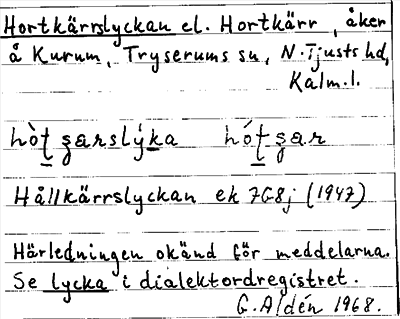 Hortkärrslyckan el. Hortkärr, åker
å Kurum, Tryserums sn, N. Tjusts hd,
Kalm. l.
hòt̠ şarslýka hót̠ şar
Hållkärrslyckan ek 7G8j (1947)
Härledningen okänd för meddelarna.
Se lycka i dialektordregistret.
G. Aldén 1968.